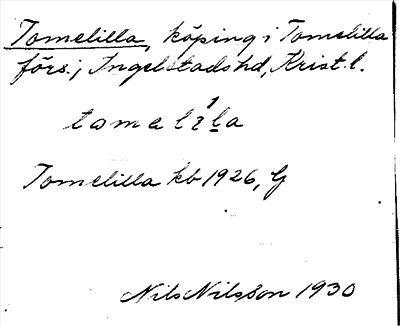 Tomelilla, köping i Tomelilla
förs., Ingelstads hd, Krist. l.
Tomelilla kb 1926, G
Nils Nilsson 1930